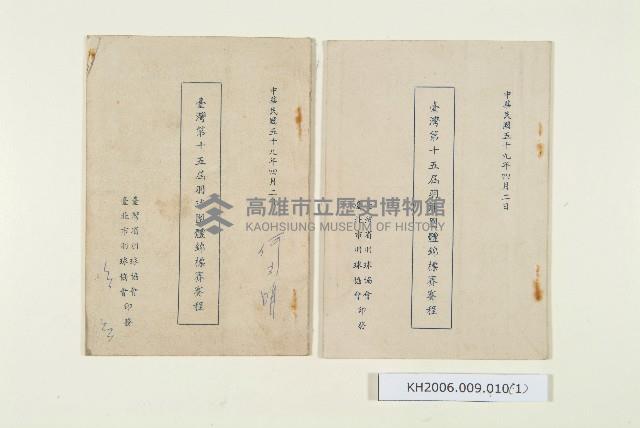 中華民國五十九年四月二日
臺灣第十五屆羽球團體錦標賽賽程
臺灣省羽球協會
臺北市羽球協會 印發
中華民國五十九年四月二日
臺灣第十五屆羽球團體錦標賽賽程
臺灣省羽球協會
臺北市羽球協會 印發
高雄市立歷史博物館
KAOHSIUNG MUSEUM OF HISTORY
KH2006.009.010(1)